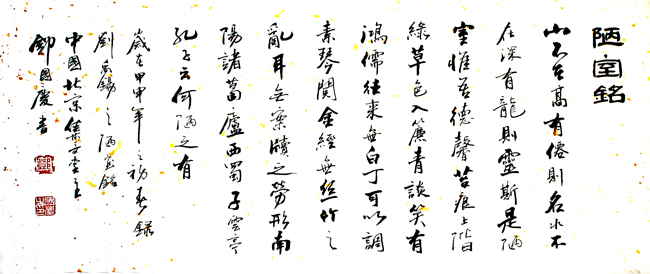 陋室銘
山不在高有僊則名水不
在深有龍則靈斯是陋
室惟吾德馨苔痕上階
綠草色入簾青談笑有
鴻儒往來無白丁可以調
素琴閱金經無絲竹之
亂耳无案牘之勞形南
陽諸葛廬西蜀子雲亭
孔子云何陋之有
歲在甲申年之初春錄
劉禹錫之陋室銘
中國北京集
國慶書